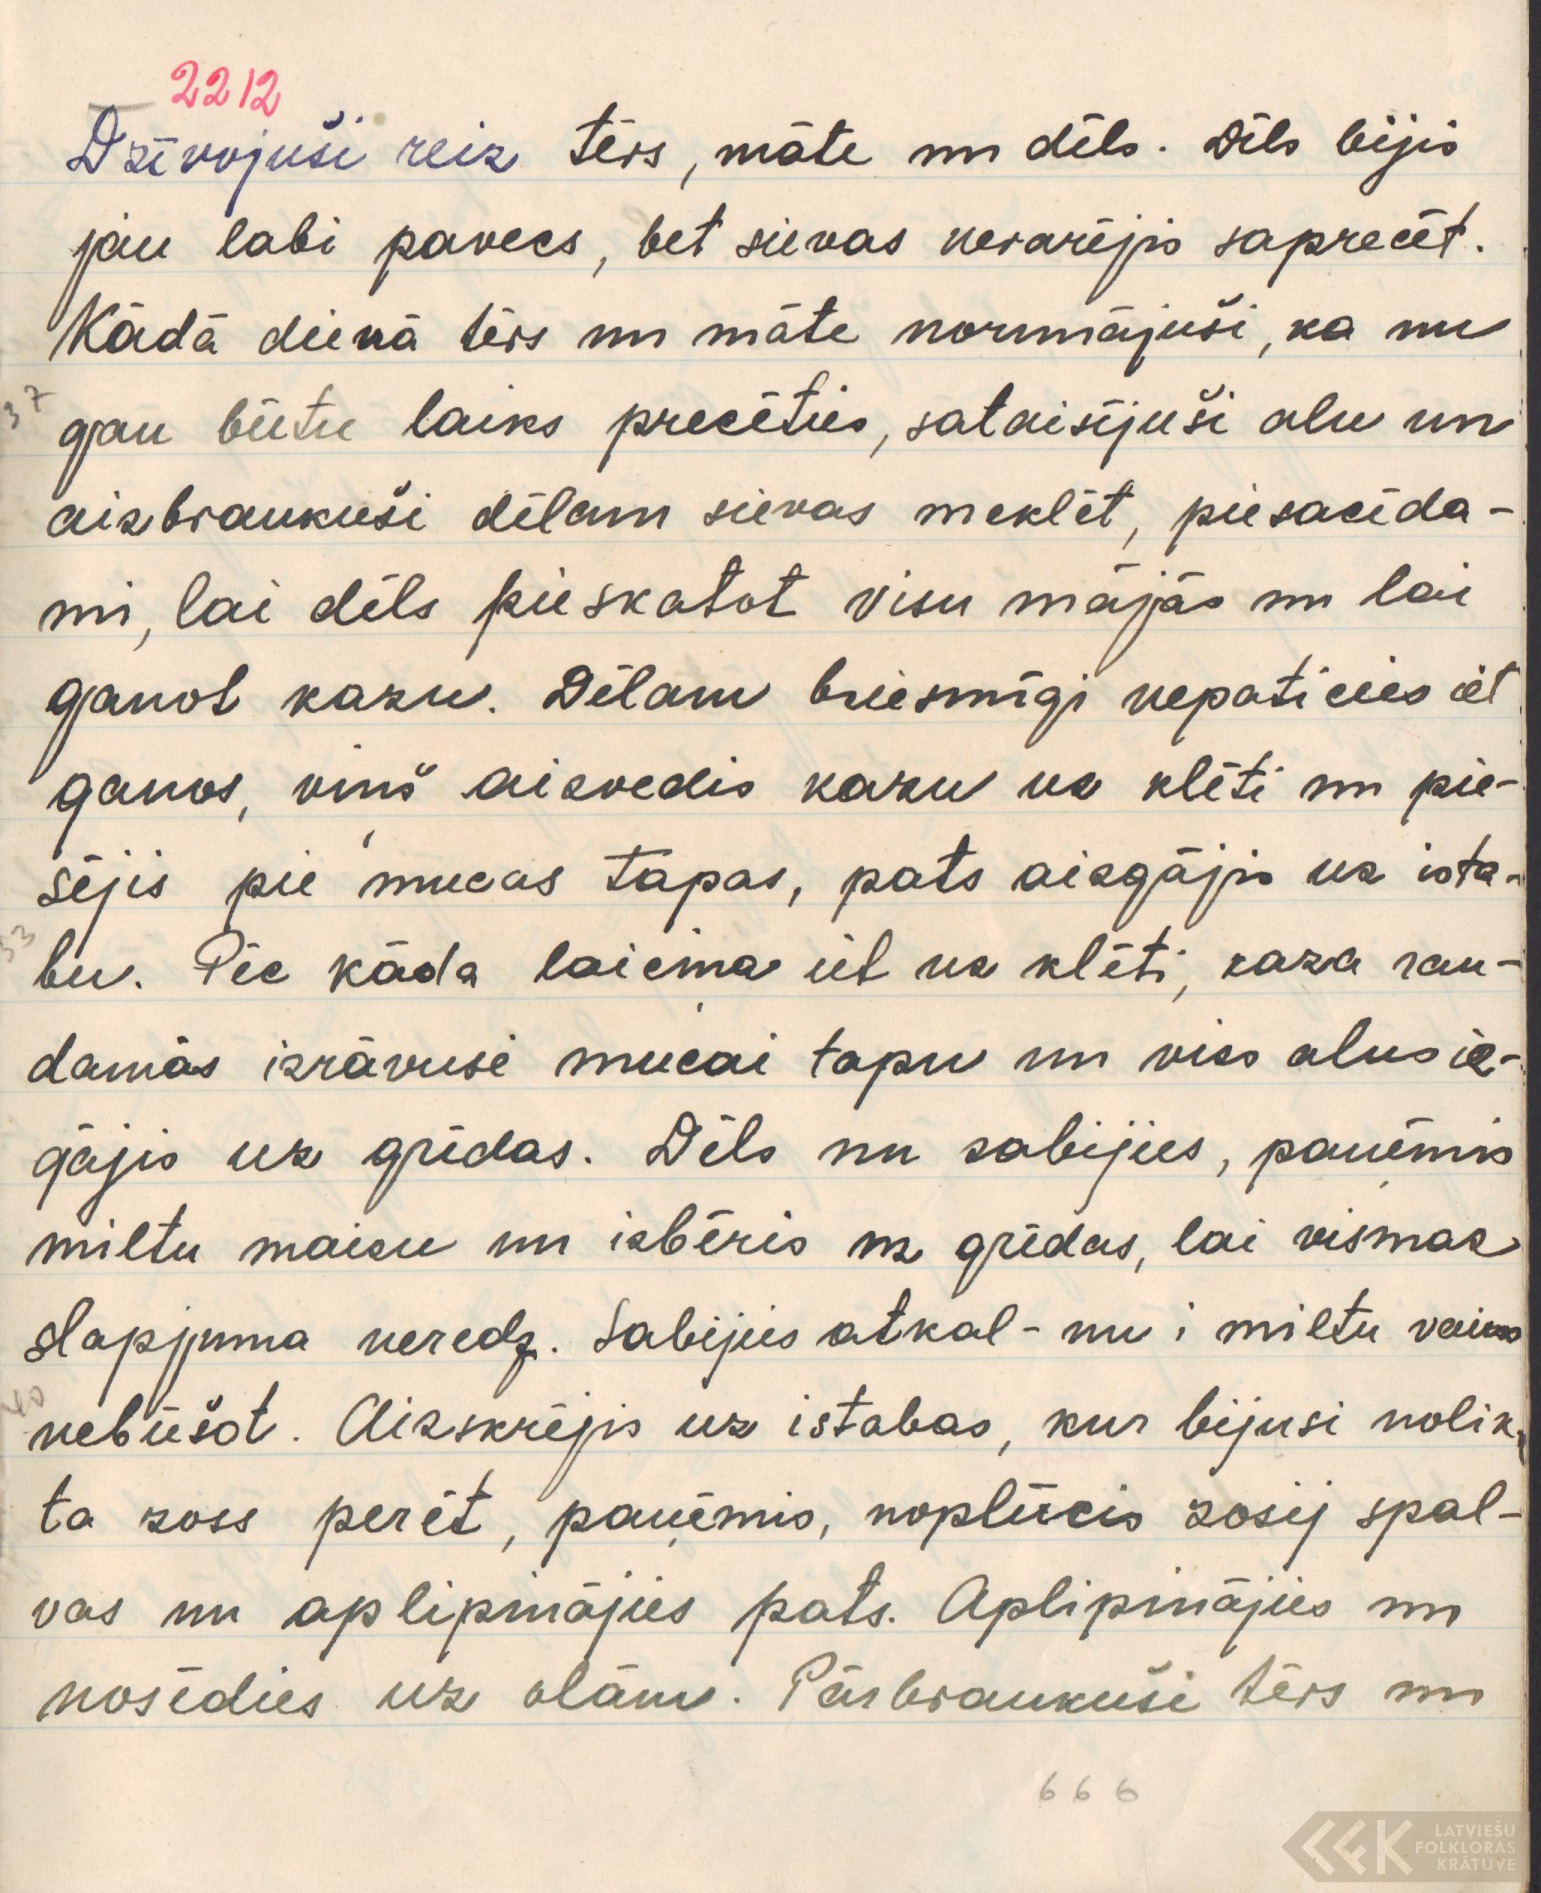 2212
Dzīvojuši reiz tērs, māte un dēls. Dēls bijis
jau labi pavecs, bet sievas nevarējis saprecēt.
Kādā dienā tērs un māte norunājuši, ka nu
37
gau būtu laiks precēties, sataisījuši alu un
aizbraukuši dēlam sievas meklēt, piesacīda-
mi, lai dēls pieskatot visu mājās un lai
ganot kazu. Dēlam briesmīgi nepaticies iet
ganos, viņš aizvedis kazu uz klēti un pie-
sējis pie mucas tapas, pats aizgājis uz ista-
33
bu. Pēc kāda laiciņa iet uz klēti, kaza rau-
damās izrāvusi mucai tapu un viss alus iz-
gājis uz grīdas. Dēls nu sabijies, paņēmis
miltu maisu un izbēris uz grīdas, lai vismaz
slapjuma neredz. Sabijies atkal - nu i miltu vairs
40
nebūšot. Aizskrējis uz istabas, kur bijusi nolik-
ta zoss perēt, paņēmis, noplūcis zosij spal-
vas un aplipinājies pats. Aplipinājies un
nosēdies uz olām. Pārbraukuši tērs un
666
LATVIEŠU
FOLKLORAS
KRĀTUVE